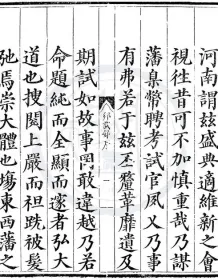 河南謂茲盛典適維新之會
視徃昔可不加慎重哉乃謀
藩臬幣聘考試官夙乂乃事
有弗若于茲丕釐葦靡遺及
期試如故事罔敢違越乃若
命題純而全顯而邃者弘大
道也搜閱上嚴而袒跣被髮
弛焉崇大體也塲東西藩之